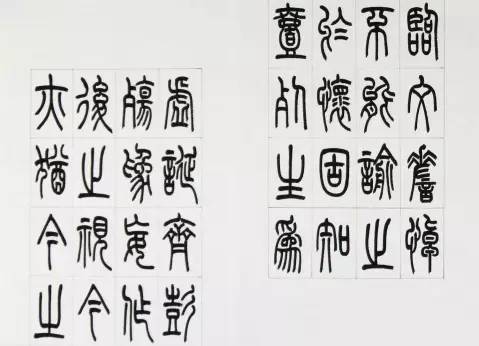 臨文嗟悼
不能諭之
於懷固知
壹死生為
虛誕齊彭
殤為妄作
後之視今
亦猶今之